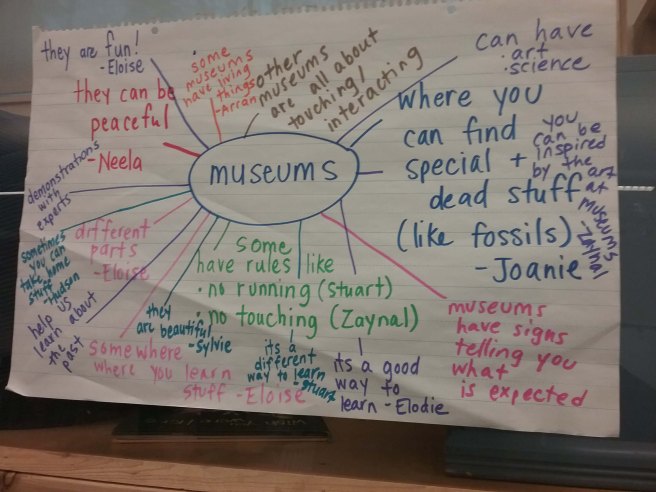 they are fun!
- Eloise
some
museums
have living
things
- Arran
other
museums
are all about
touching/
interacting
can have
· art
· science
they can be
peaceful
- Neela
museums
where you
can find
special +
dead stuff
(like fossils)
- Joanie
you
can be
inspired
by the
art
at
museums
- Zaynal
demonstrations
with
experts
different
parts
- Eloise
sometimes
you can
take home
stuff
- Hudson
help us
learn about
the
past
they
are beautiful
- Sylvie
some
have rules like
· no running (Stuart)
· no touching (Zaynal)
somewhere
where you learn
stuff - Eloise
its a
different
way to learn
- Stuart
its a good
way to
learn - Elodie
museums
have signs
telling you
what
is expected